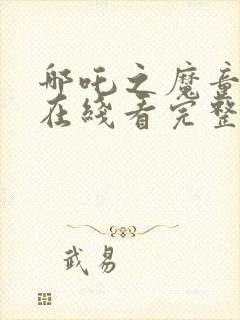 哪吒之魔童
在綫看完整
武易